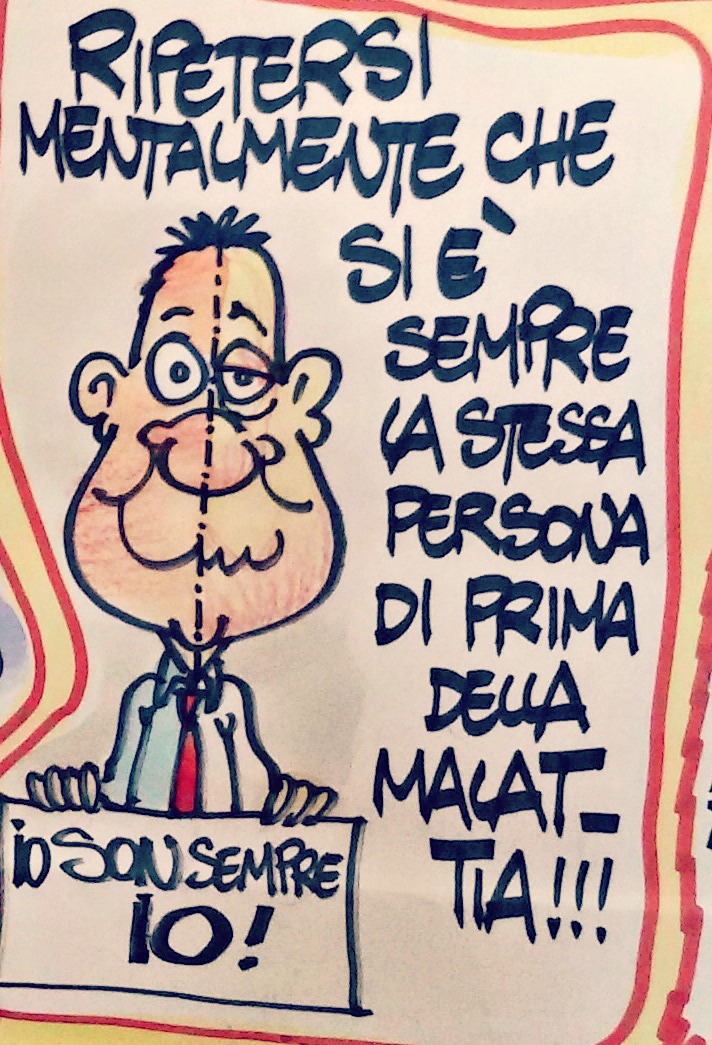 RIPETERSI
MENTALMENTE CHE
SI È
SEMPRE
LA STESSA
PERSONA
DI PRIMA
DELLA
MALAT_
TIA!!!
iO SON SEMPRE
IO!